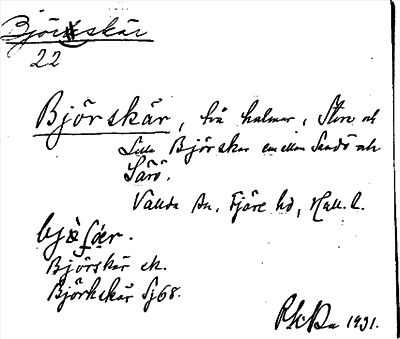 Björkskär
22
Björskär, två holmar, Stora och
Lilla Björskär emellan Sandö och
Särö.
Vallda sn, Fjäre hd, Hall. l.
Björskär ek.
Björkskär Sj68.
1931.